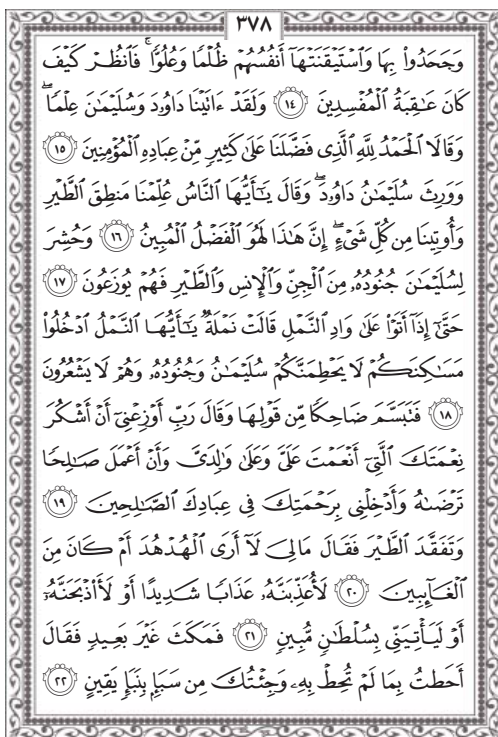 ٣٧٨
وَجَحَدُواْ بِهَا وَٱسْتَيْقَنَتْهَآ أَنفُسُهُمْ ظُلْمًا وَعُلُوًّاۚ فَٱنظُرْ كَيْفَ
كَانَ عَٰقِبَةُ ٱلْمُفْسِدِينَ ١٤ وَلَقَدْ ءَاتَيْنَا دَاوُۥدَ وَسُلَيْمَٰنَ عِلْمًاۖ
وَقَالَا ٱلْحَمْدُ لِلَّهِ ٱلَّذِى فَضَّلَنَا عَلَىٰ كَثِيرٍ مِّنْ عِبَادِهِ ٱلْمُؤْمِنِينَ ١٥
وَوَرِثَ سُلَيْمَٰنُ دَاوُۥدَۖ وَقَالَ يَٰٓأَيُّهَا ٱلنَّاسُ عُلِّمْنَا مَنطِقَ ٱلطَّيْرِ
وَأُوتِينَا مِن كُلِّ شَىْءٍۖ إِنَّ هَٰذَا لَهُوَ ٱلْفَضْلُ ٱلْمُبِينُ ١٦ وَحُشِرَ
لِسُلَيْمَٰنَ جُنُودُهُۥ مِنَ ٱلْجِنِّ وَٱلْإِنسِ وَٱلطَّيْرِ فَهُمْ يُوزَعُونَ ١٧
حَتَّىٰٓ إِذَآ أَتَوْاْ عَلَىٰ وَادِ ٱلنَّمْلِ قَالَتْ نَمْلَةٌ يَٰٓأَيُّهَا ٱلنَّمْلُ ٱدْخُلُواْ
مَسَٰكِنَكُمْ لَا يَحْطِمَنَّكُمْ سُلَيْمَٰنُ وَجُنُودُهُۥ وَهُمْ لَا يَشْعُرُونَ
١٨ فَتَبَسَّمَ ضَاحِكًا مِّن قَوْلِهَا وَقَالَ رَبِّ أَوْزِعْنِىٓ أَنْ أَشْكُرَ
نِعْمَتَكَ ٱلَّتِىٓ أَنْعَمْتَ عَلَىَّ وَعَلَىٰ وَٰلِدَىَّ وَأَنْ أَعْمَلَ صَٰلِحًا
تَرْضَىٰهُ وَأَدْخِلْنِى بِرَحْمَتِكَ فِى عِبَادِكَ ٱلصَّٰلِحِينَ ١٩
وَتَفَقَّدَ ٱلطَّيْرَ فَقَالَ مَالِىَ لَآ أَرَى ٱلْهُدْهُدَ أَمْ كَانَ مِنَ
ٱلْغَآئِبِينَ ٢٠ لَأُعَذِّبَنَّهُۥ عَذَابًا شَدِيدًا أَوْ لَأَاْذْبَحَنَّهُۥٓ
أَوْ لَيَأْتِيَنِّى بِسُلْطَٰنٍ مُّبِينٍ ٢١ فَمَكَثَ غَيْرَ بَعِيدٍ فَقَالَ
أَحَطتُ بِمَا لَمْ تُحِطْ بِهِۦ وَجِئْتُكَ مِن سَبَإٍۭ بِنَبَإٍ يَقِينٍ ٢٢